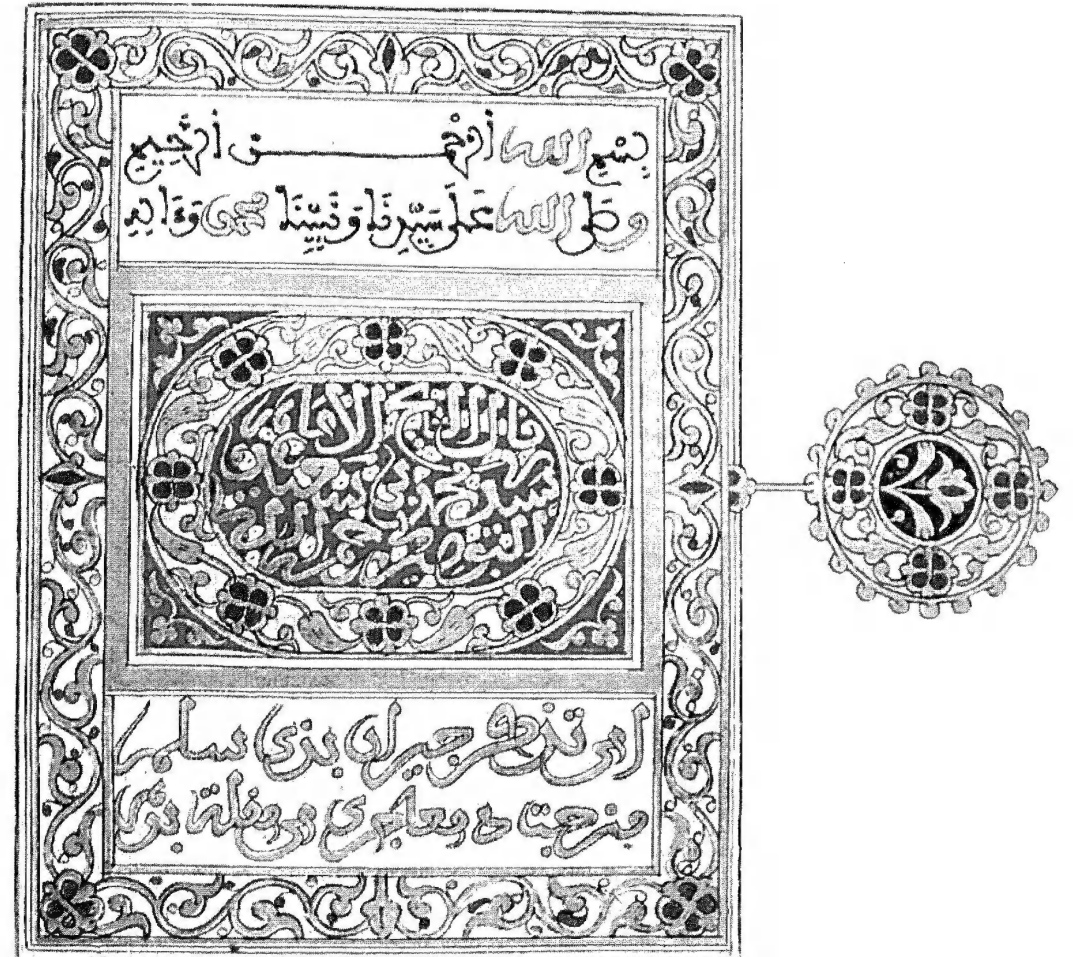 بِسْمِ اللَّه اَلرَّحْمَـٰنِ اَلرَّحِيمِ
وَصَلَّى اللَّه عَلَى سَيِّدِنَا وَنَبِيِّنَا محمد وَءَالِهِ
قال الشيخ الإمام
محمد بن سعيد
البوصيري رحمه الله
أمن تذكر جيران بذي سلم
مزجت دمعا جرى من مقلة بدم